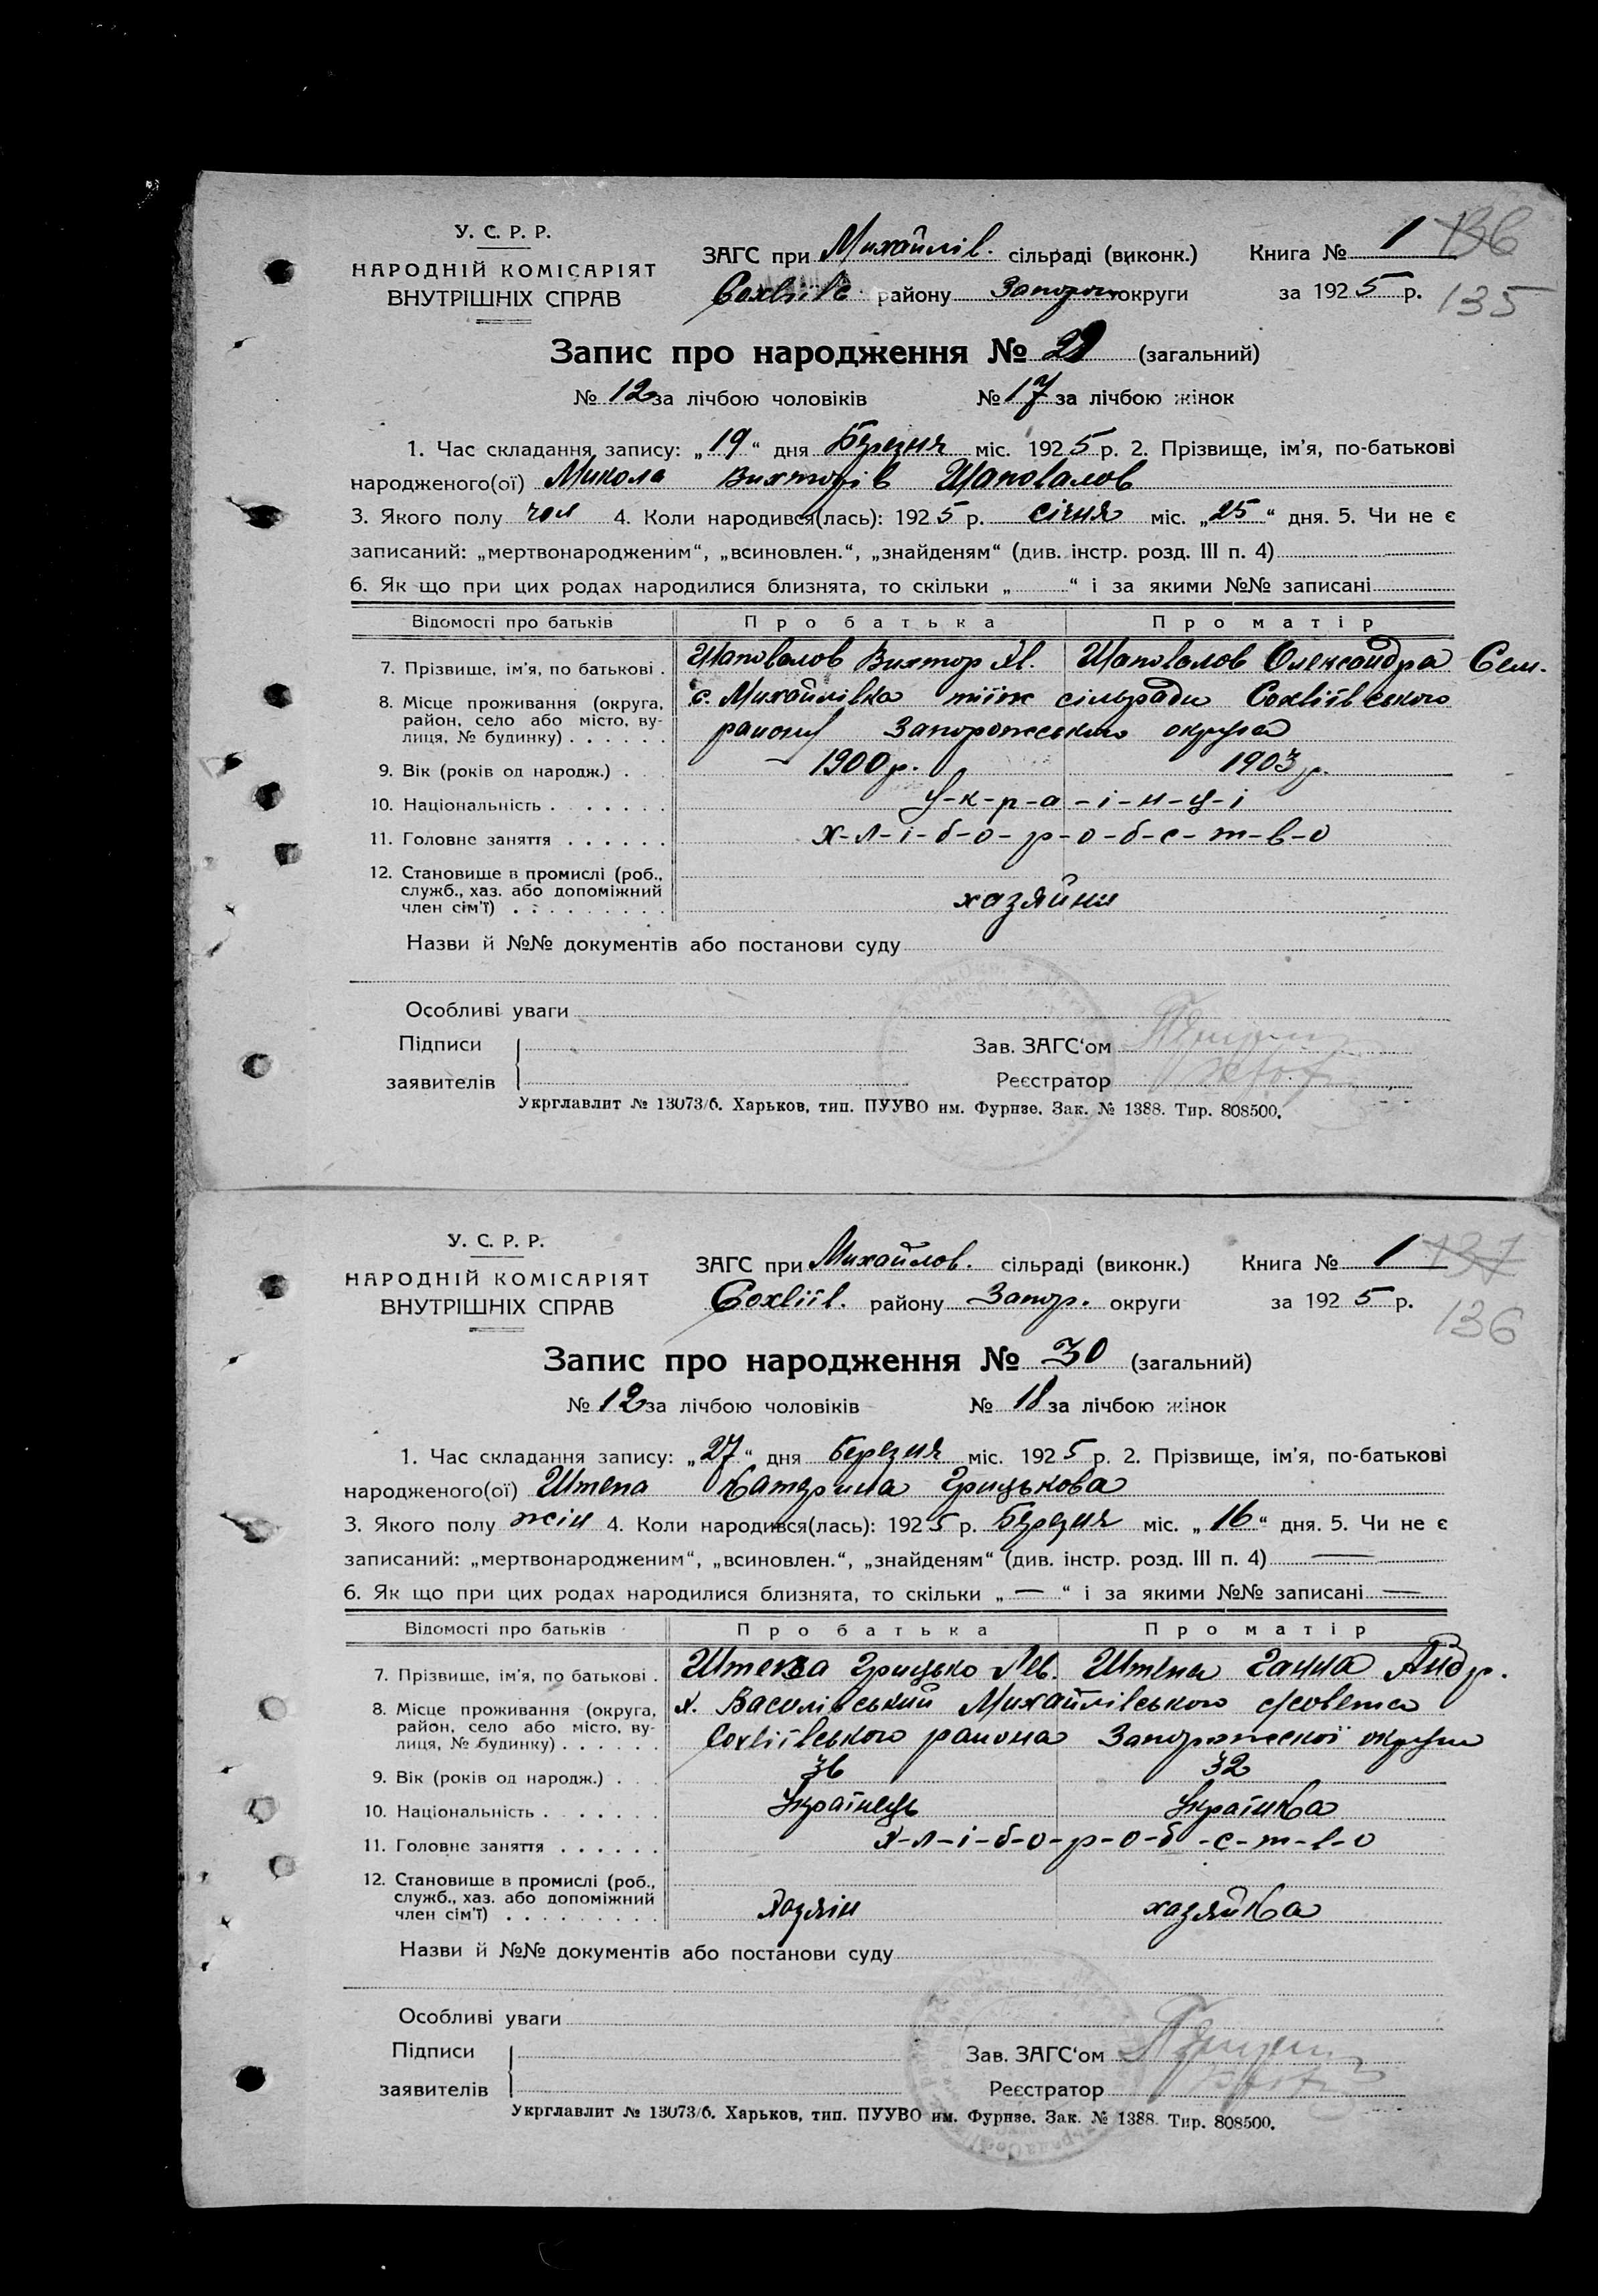 У. С. Р. Р.
НАРОДНІЙ КОМІСАРІЯТ
ВНУТРІШНІХ СПРАВ
ЗАГС при Михайлів. сільраді (виконк.) Книга № 1 136
району Запорож округи за 1925 р. 135
Запис про народження № 29 (загальний)
№ 12 за лічбою чоловіків № 17 за лічбою жінок
1. Час складання запису: „19“ дня Березня міс. 1925 р. 2. Прізвище, ім'я, по-батькові
народженого(ої) Микола Вихторів Шаповалов
3. Якого полу чол 4. Коли народився(лась): 1925 р. січня міс. „25“ дня. 5. Чи не є
записаний: „мертвонародженим“, „всиновлен.“, „знайденям“ (див. інстр. розд. III п. 4)
6. Як що при цих родах народилися близнята, то скільки „ “ і за якими №№ записані
Відомості про батьків Про батька Про матір
7. Прізвище, ім'я, по батькові . Шаповалов Вихтор Ів. Шаповалов Олександра Сем.
8. Місце проживання (округа, район, село або місто, вулиця, № будинку) . . . . . . с. Михайлівка тіїж сільради Софіївського
району Запорожського округа
9. Вік (років од народж.) . . . 1900 р. 1903 р.
10. Національність . . . . . . . У-к-р-а-ї-н-ц-і
11. Головне заняття . . . . . . х-л-і-б-о-р-о-б-с-т-в-о
12. Становище в промислі (роб., служб., хаз. або допоміжний член сім'ї) . . . . . . . . . хазяйни
Назви й №№ документів або постанови суду
Особливі уваги
Підписи Зав. ЗАГС'ом
заявителів Реєстратор
Укрглавлит № 13073/б. Харьков, тип. ПУУВО им. Фрунзе. Зак. № 1388. Тир. 808500.
У. С. Р. Р.
НАРОДНІЙ КОМІСАРІЯТ
ВНУТРІШНІХ СПРАВ
ЗАГС при Михайлов. сільраді (виконк.) Книга № 1 137
Сохвіїв. району Запор. округи за 1925 р. 136
Запис про народження № 30 (загальний)
№ 12 за лічбою чоловіків № 18 за лічбою жінок
1. Час складання запису: „27“ дня Березня міс. 1925 р. 2. Прізвище, ім'я, по-батькові
народженого(ої) Штепа Катерина Грицькова
3. Якого полу жін 4. Коли народився(лась): 1925 р. Березня міс. „16“ дня. 5. Чи не є
записаний: „мертвонародженим“, „всиновлен.“, „знайденям“ (див. інстр. розд. III п. 4) —
6. Як що при цих родах народилися близнята, то скільки „—“ і за якими №№ записані —
Відомості про батьків Про батька Про матір
7. Прізвище, ім'я, по батькові . Штепа Грицько Лев. Штепа Ганна Андр.
8. Місце проживання (округа, район, село або місто, вулиця, № будинку) . . . . . . х. Василівський Михайлівського
Сохвіївського района Запорожскої округи
9. Вік (років од народж.) . . . 36 32
10. Національність . . . . . . . Українець Українка
11. Головне заняття . . . . . . х-л-і-б-о-р-о-б-с-т-в-о
12. Становище в промислі (роб., служб., хаз. або допоміжний член сім'ї) . . . . . . . . . Хазяін хазяйка
Назви й №№ документів або постанови суду
Особливі уваги
Підписи Зав. ЗАГС'ом
заявителів Реєстратор
Укрглавлит № 13073/б. Харьков, тип. ПУУВО им. Фрунзе. Зак. № 1388. Тир. 808500.